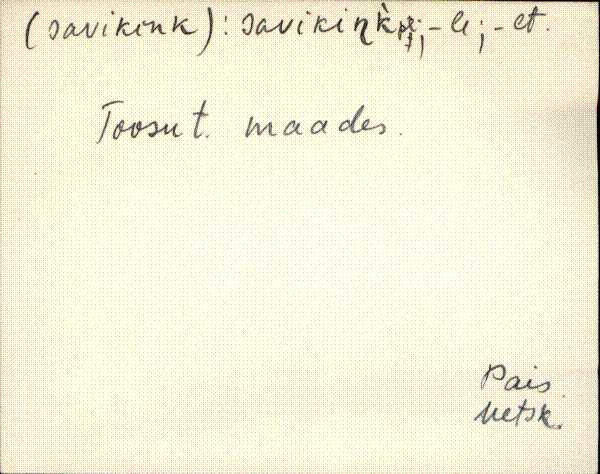 (savikink): savikiŋk̀ -le; -et.
Toosu t. maades.
Pais
Metsk.